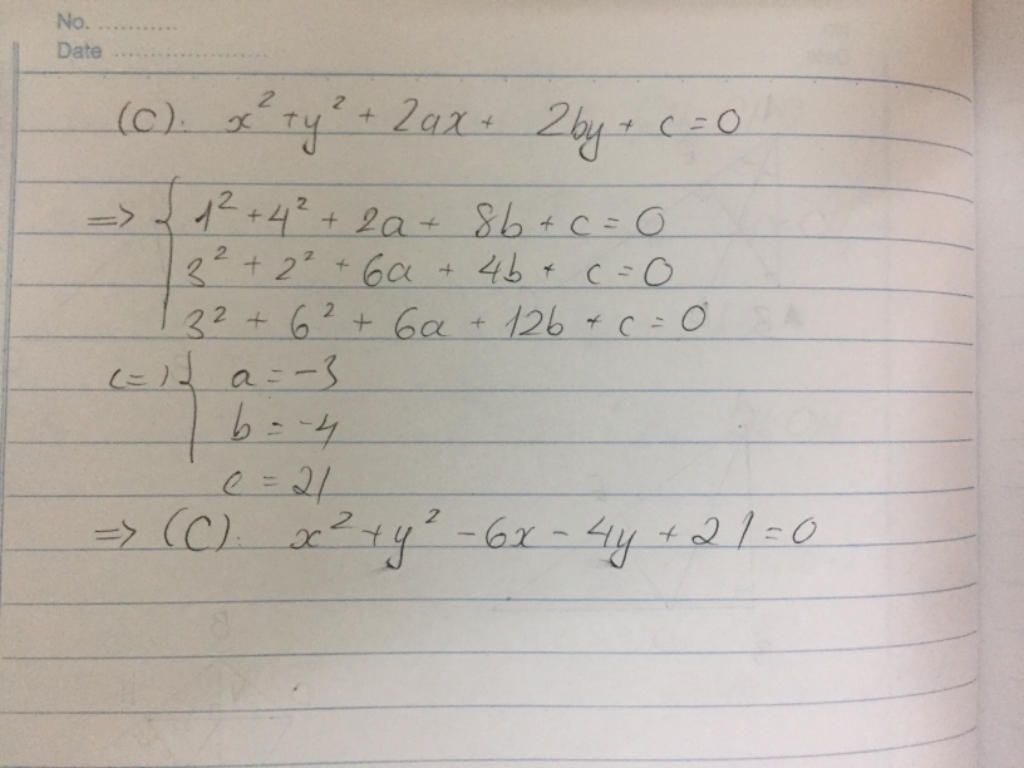 No. ............
Date ........................
(C): x² + y² + 2ax + 2by + c = 0
=> { 1² + 4² + 2a + 8b + c = 0
3² + 2² + 6a + 4b + c = 0
3² + 6² + 6a + 12b + c = 0
(=) { a = -3
b = -4
c = 21
=> (C): x² + y² - 6x - 4y + 21 = 0